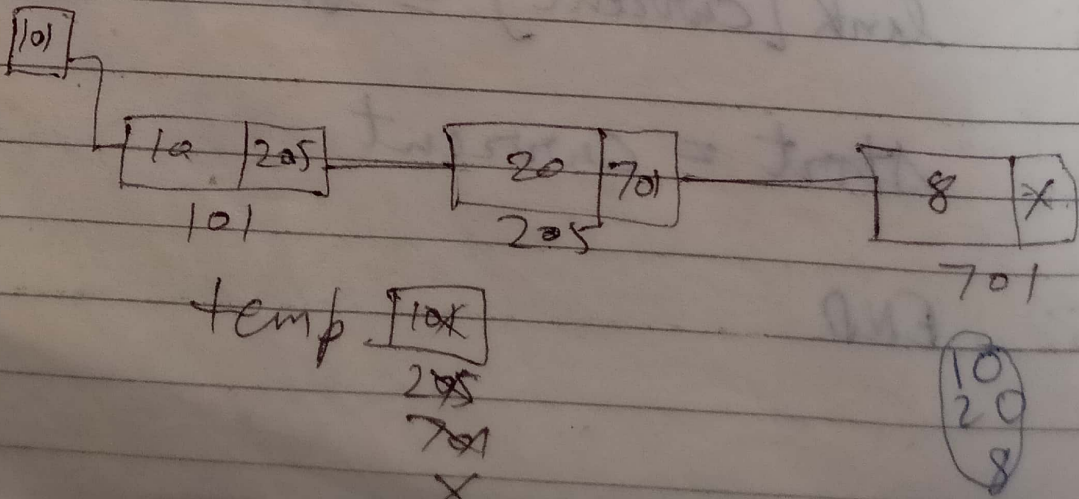 101
10 205 20 701 8 X
101 205 701
temp 101
205
701
X
10
20
8